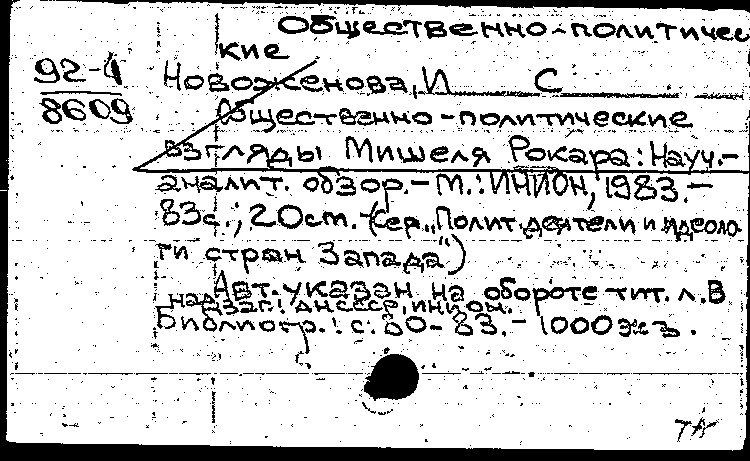 Общественно-политичес
кие
92-4
8609
Новоженова, И С
Общественно-политические
взгляды Мишеля Рокара: Науч.-
аналит. обзор.- М.: ИНИОН, 1983.-
83с.; 20см. -(Сер. „Полит. деятели и идеоло
ги стран Запада")
Авт. указан на обороте тит. л. В
надзаг.: АН СССР, ИНИОН.
Библиогр.: с. 80-83.- 1000 экз.